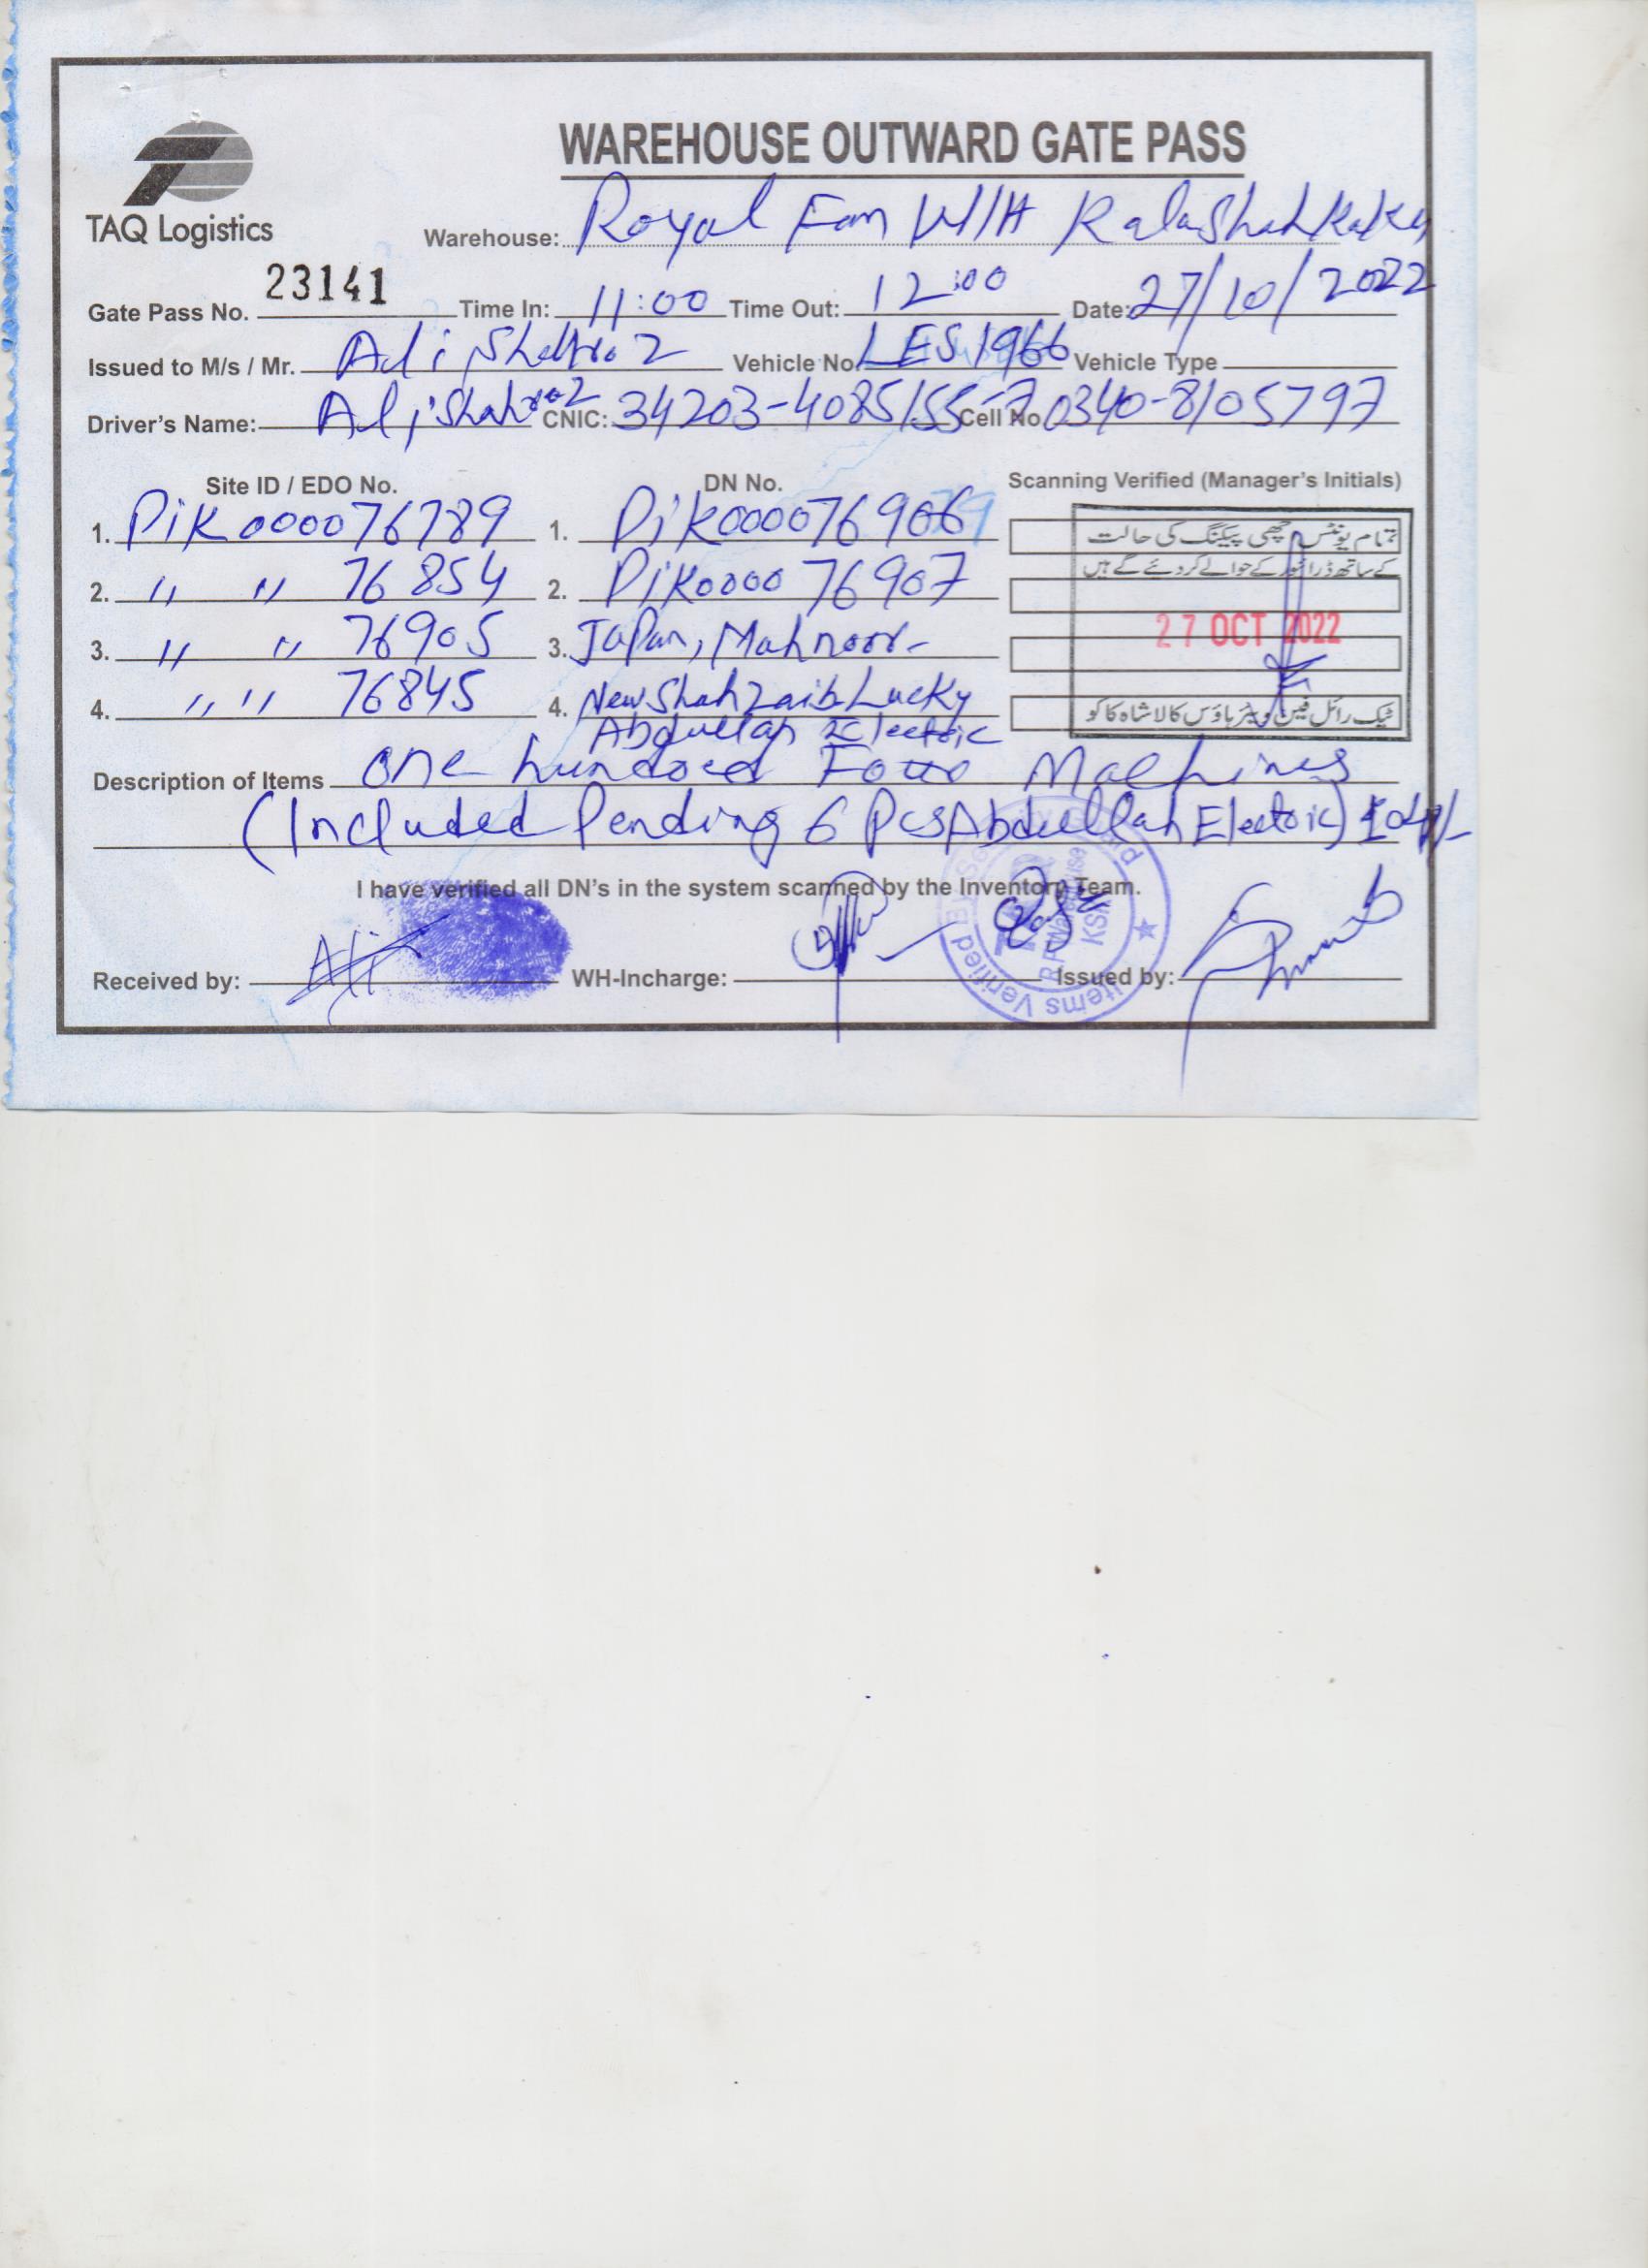 WAREHOUSE OUTWARD GATE PASS
TAQ Logistics
Warehouse: Royal Fan W/H Kalashah Kaku
Gate Pass No. 23141 Time In: 11:00 Time Out: 12:00 Date: 27/10/2022
Issued to M/s / Mr. Ali Shahroz Vehicle No. LES 1966 Vehicle Type
Driver's Name: Ali Shahroz CNIC: 34203-4085155-7 Cell No 0340-8105797
Site ID / EDO No. DN No. Scanning Verified (Manager's Initials)
1. PiK000076789 1. PiK000076906
2. " " 76854 2. PiK000076907
3. " " 76905 3. Japan, Mahnoor-
4. " " 76845 4. New Shahzaib Lucky
Abdullah Electric
تمام یونٹس اچھی پیکنگ کی حالت
کے ساتھ ڈرائیور کے حوالے کر دئے گے ہیں
27 OCT 2022
ٹیک رائل فین ویئر ہاؤس کالا شاہ کاکو
Description of Items one hundred Four Machines
(Included Pending 6 Pcs Abdullah Electric) 104/-
I have verified all DN's in the system scanned by the Inventory Team.
Received by: Ali WH-Incharge: Issued by:
Items Verified
R.F Warehouse
KSK